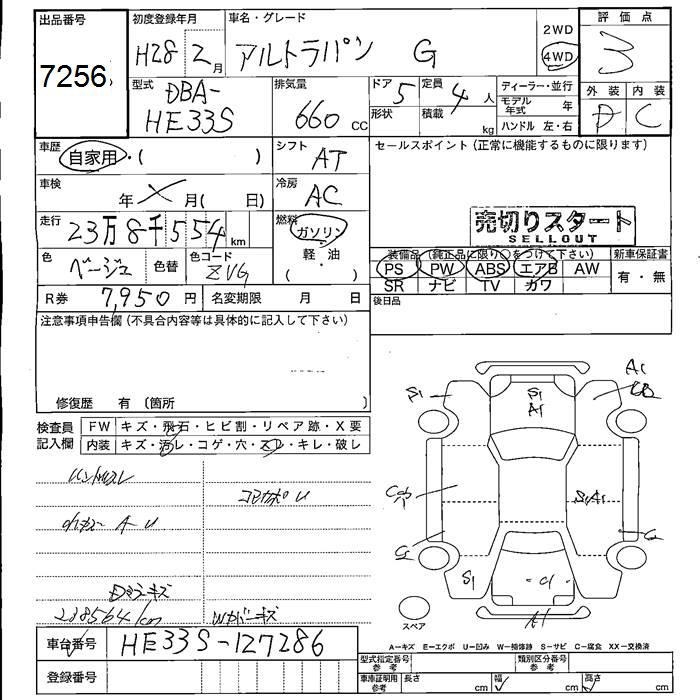 出品番号
7256
初度登録年月
H28 2月
車名・グレード
アルトラパン G
2WD
4WD
評価点
3
外装 内装
D C
型式
DBA-
HE33S
排気量
660 cc
ドア
5
形状
定員
4人
積載
kg
ディーラー・並行
モデル年式 年
ハンドル 左・右
車歴
自家用・( )
シフト
AT
セールスポイント(正常に機能するものに限ります)
車検
年 月( 日)
冷房
AC
走行
23万8千554km
燃料
ガソリン
軽・油
( )
売切りスタート
SELLOUT
色
ベージュ
色替
色コード
ZVG
装備品(純正品に限り○をつけて下さい)
新車保証書
PS PW ABS エアB AW
有・無
SR ナビ TV カワ
後日品
R券 7,950円
名変期限 月 日
注意事項申告欄(不具合内容等は具体的に記入して下さい)
修復歴 有(箇所 )
検査員
記入欄
FW キズ・飛石・ヒビ割・リペア跡・X要
内装 キズ・汚レ・コゲ・穴・スレ・キレ・破レ
ハンドルスレ
A U
キズ
238564km
キズ
S1
S1
A1
A1
S1A1
S1
A1
スペア
A-キズ E-エクボ U-凹み W-補修跡 S-サビ C-腐食 XX-交換済
車台番号
HE33S-127286
登録番号
型式指定番号
参考
類別区分番号
参考
車庫証明用
参考
長さ cm
幅 cm
高さ cm